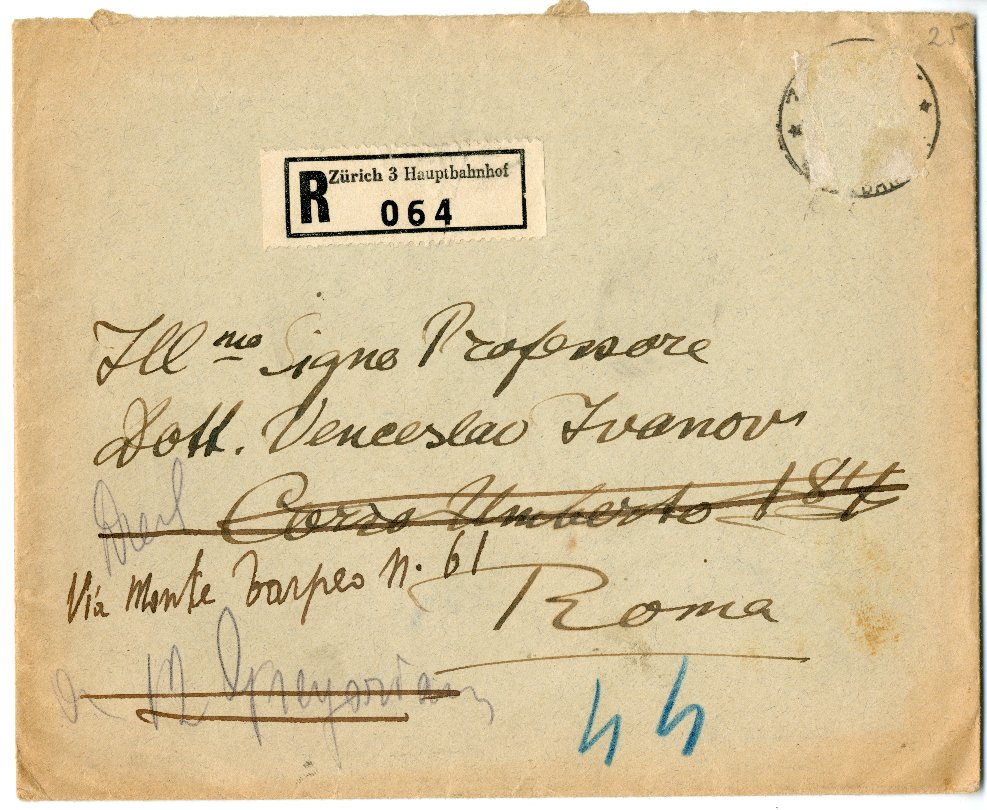 25
R Zürich 3 Hauptbahnhof
064
Ill mo Signo Professore
Dott. Venceslao Ivanov
Corso Umberto 184
Via Monte Tarpeo N. 61
Roma
12 Gregoriana
44